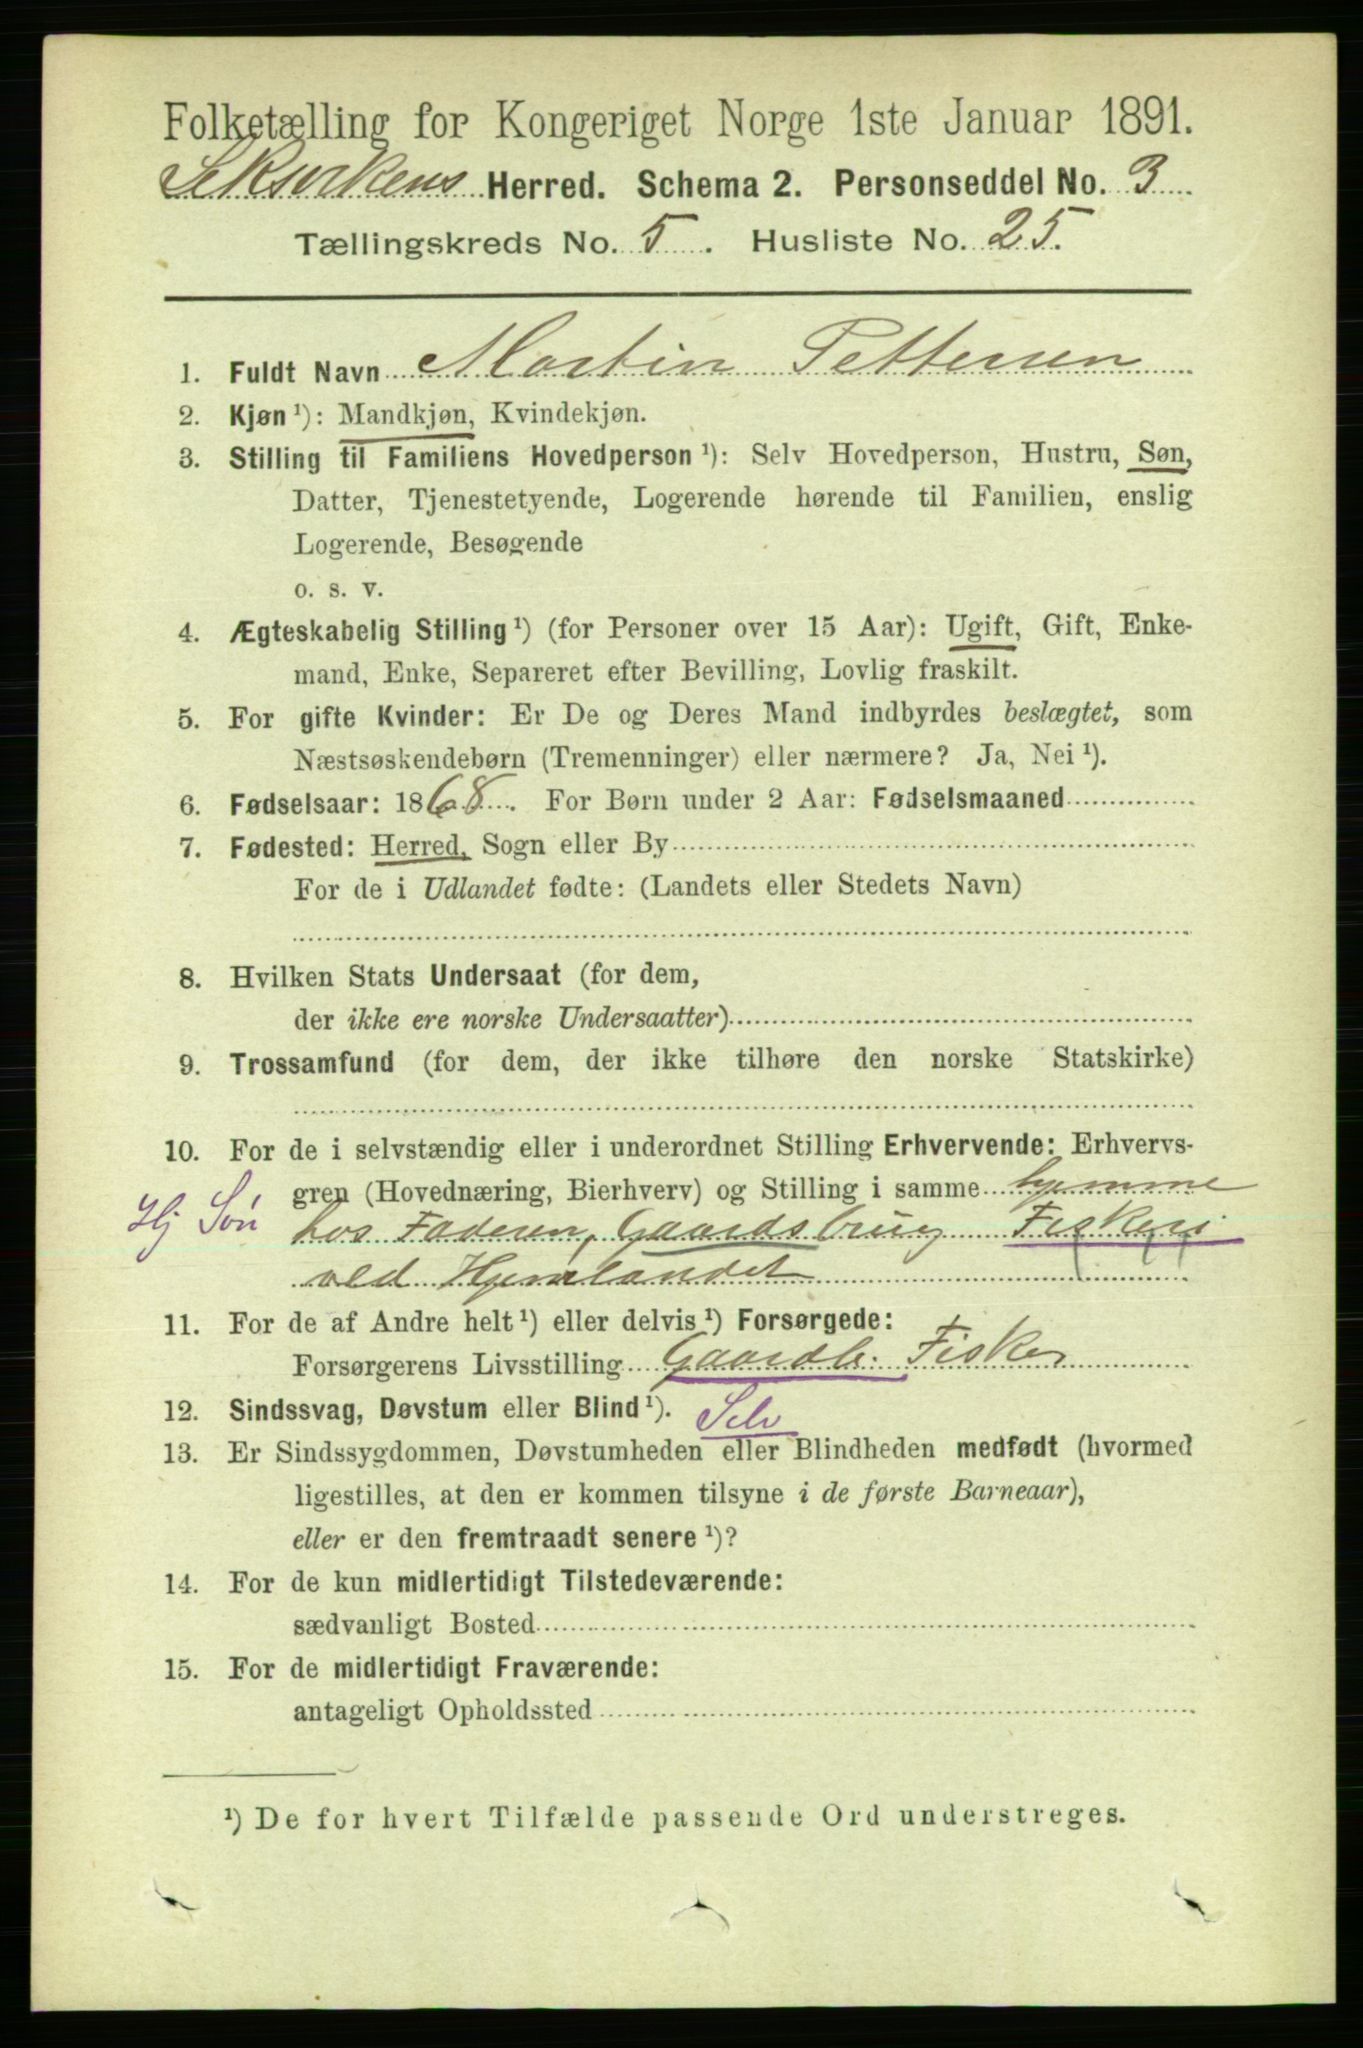 Folketælling for Kongeriget Norge 1ste Januar 1891.
Herred. Schema 2. Personseddel No. 3
Tællingskreds No. 5. Husliste No. 25.
1. Fuldt Navn Martin Pettersen
2. Kjøn ¹): Mandkjøn, Kvindekjøn.
3. Stilling til Familiens Hovedperson ¹): Selv Hovedperson, Hustru, Søn,
Datter, Tjenestetyende, Logerende hørende til Familien, enslig
Logerende, Besøgende
o. s. v.
4. Ægteskabelig Stilling ¹) (for Personer over 15 Aar): Ugift, Gift, Enke-
mand, Enke, Separeret efter Bevilling, Lovlig fraskilt.
5. For gifte Kvinder: Er De og Deres Mand indbyrdes beslægtet, som
Næstsøskendebørn (Tremenninger) eller nærmere? Ja, Nei ¹).
6. Fødselsaar: 1868. For Børn under 2 Aar: Fødselsmaaned
7. Fødested: Herred, Sogn eller By
For de i Udlandet fødte: (Landets eller Stedets Navn)
8. Hvilken Stats Undersaat (for dem,
der ikke ere norske Undersaatter)
9. Trossamfund (for dem, der ikke tilhøre den norske Statskirke)
10. For de i selvstændig eller i underordnet Stilling Erhvervende: Erhvervs-
gren (Hovednæring, Bierhverv) og Stilling i samme hjemme
Hj Søn hos Faderen, Gaardsbrug Fiskeri
ved Hjemlandet
11. For de af Andre helt ¹) eller delvis ¹) Forsørgede:
Forsørgerens Livsstilling Gaardb. Fisker
12. Sindssvag, Døvstum eller Blind ¹). Selv
13. Er Sindssygdommen, Døvstumheden eller Blindheden medfødt (hvormed
ligestilles, at den er kommen tilsyne i de første Barneaar),
eller er den fremtraadt senere ¹)?
14. For de kun midlertidigt Tilstedeværende:
sædvanligt Bosted
15. For de midlertidigt Fraværende:
antageligt Opholdssted
¹) De for hvert Tilfælde passende Ord understreges.